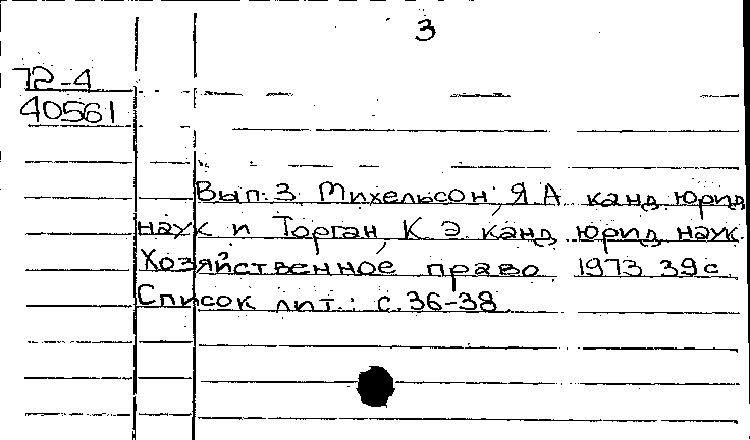 3
72-4
40561
Вып. 3. Михельсон, Я. А. канд. юрид.
наук и Торган, К. Э. канд. юрид. наук.
Хозяйственное право. 1973. 39 с.
Список лит.: с. 36-38.